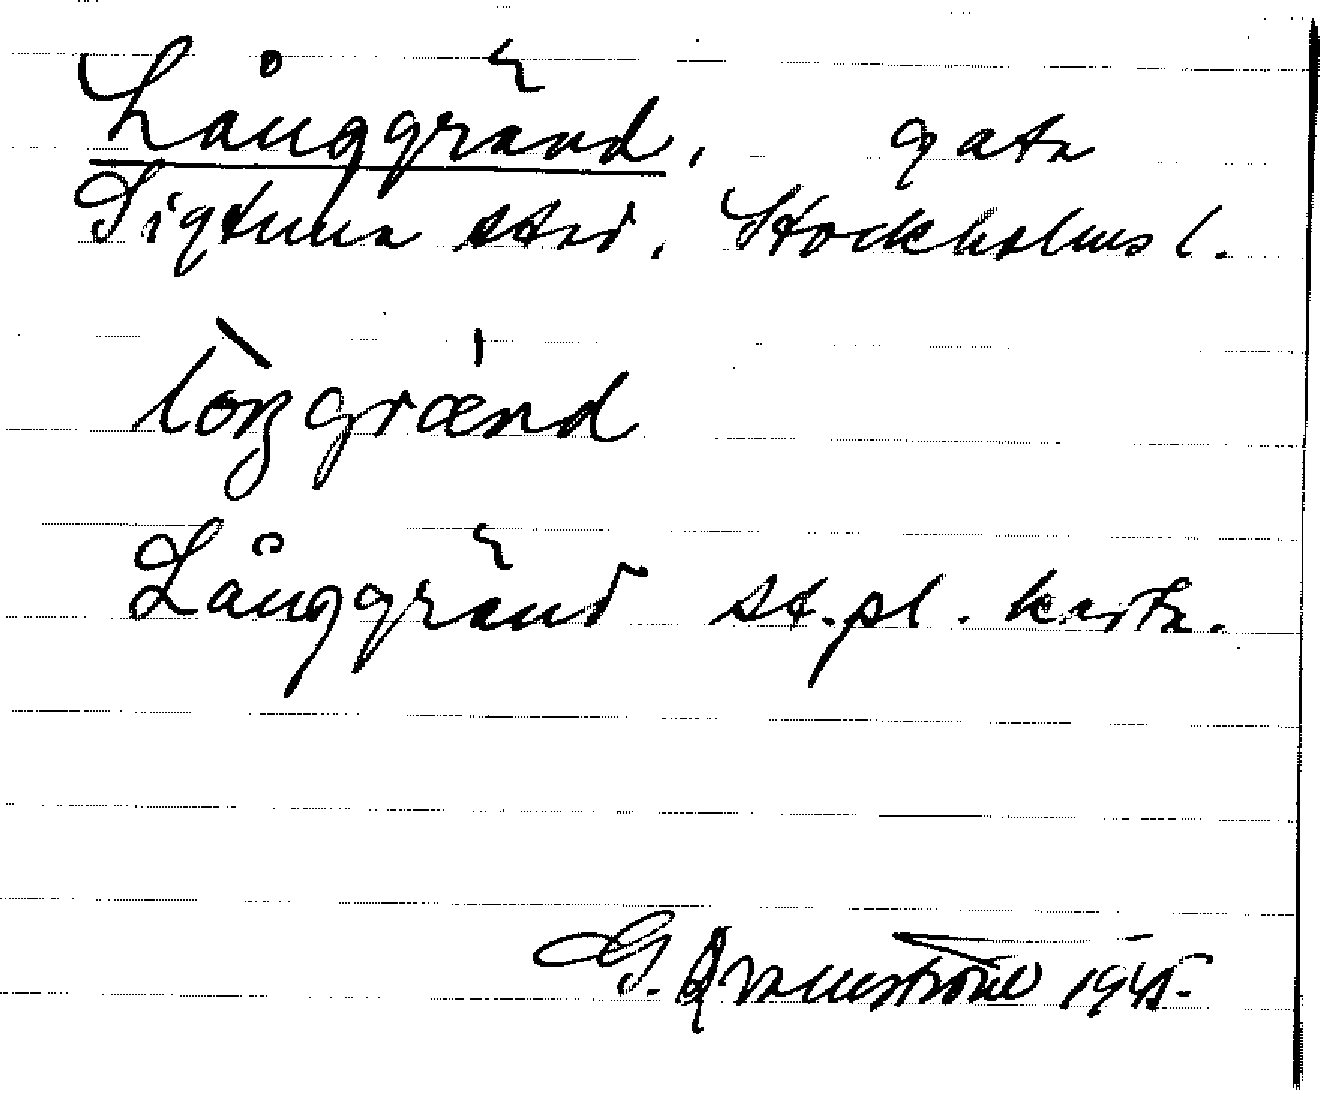 Långgränd, gata
Sigtuna stad, Stockholms l.
lòŋgrǽnd
Långgränd st.pl. karta.
G. 1945